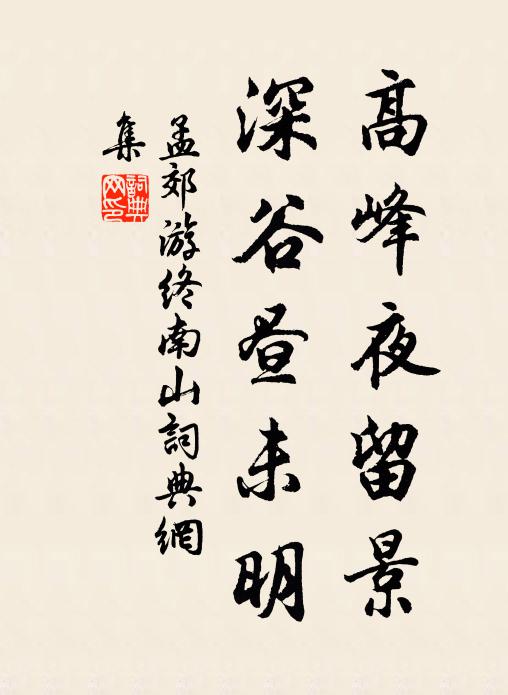 高峰夜留景
深谷昼未明
孟郊游终南山詞典網
集
詞典網印